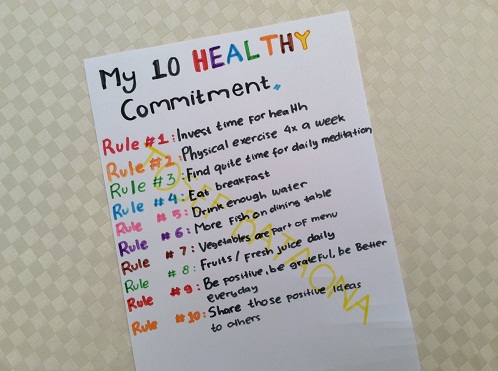 My 10 HEALTHY
Commitment.
Rule #1: Invest time for health
Rule #2: Physical exercise 4x a week
Rule #3: Find quite time for daily meditation
Rule #4: Eat breakfast
Rule #5: Drink enough water
Rule #6: More fish on dining table
Rule #7: Vegetables are part of menu
Rule #8: Fruits / Fresh juice daily
Rule #9: Be positive, be grateful, be Better
everyday
Rule #10: Share those positive ideas
to others